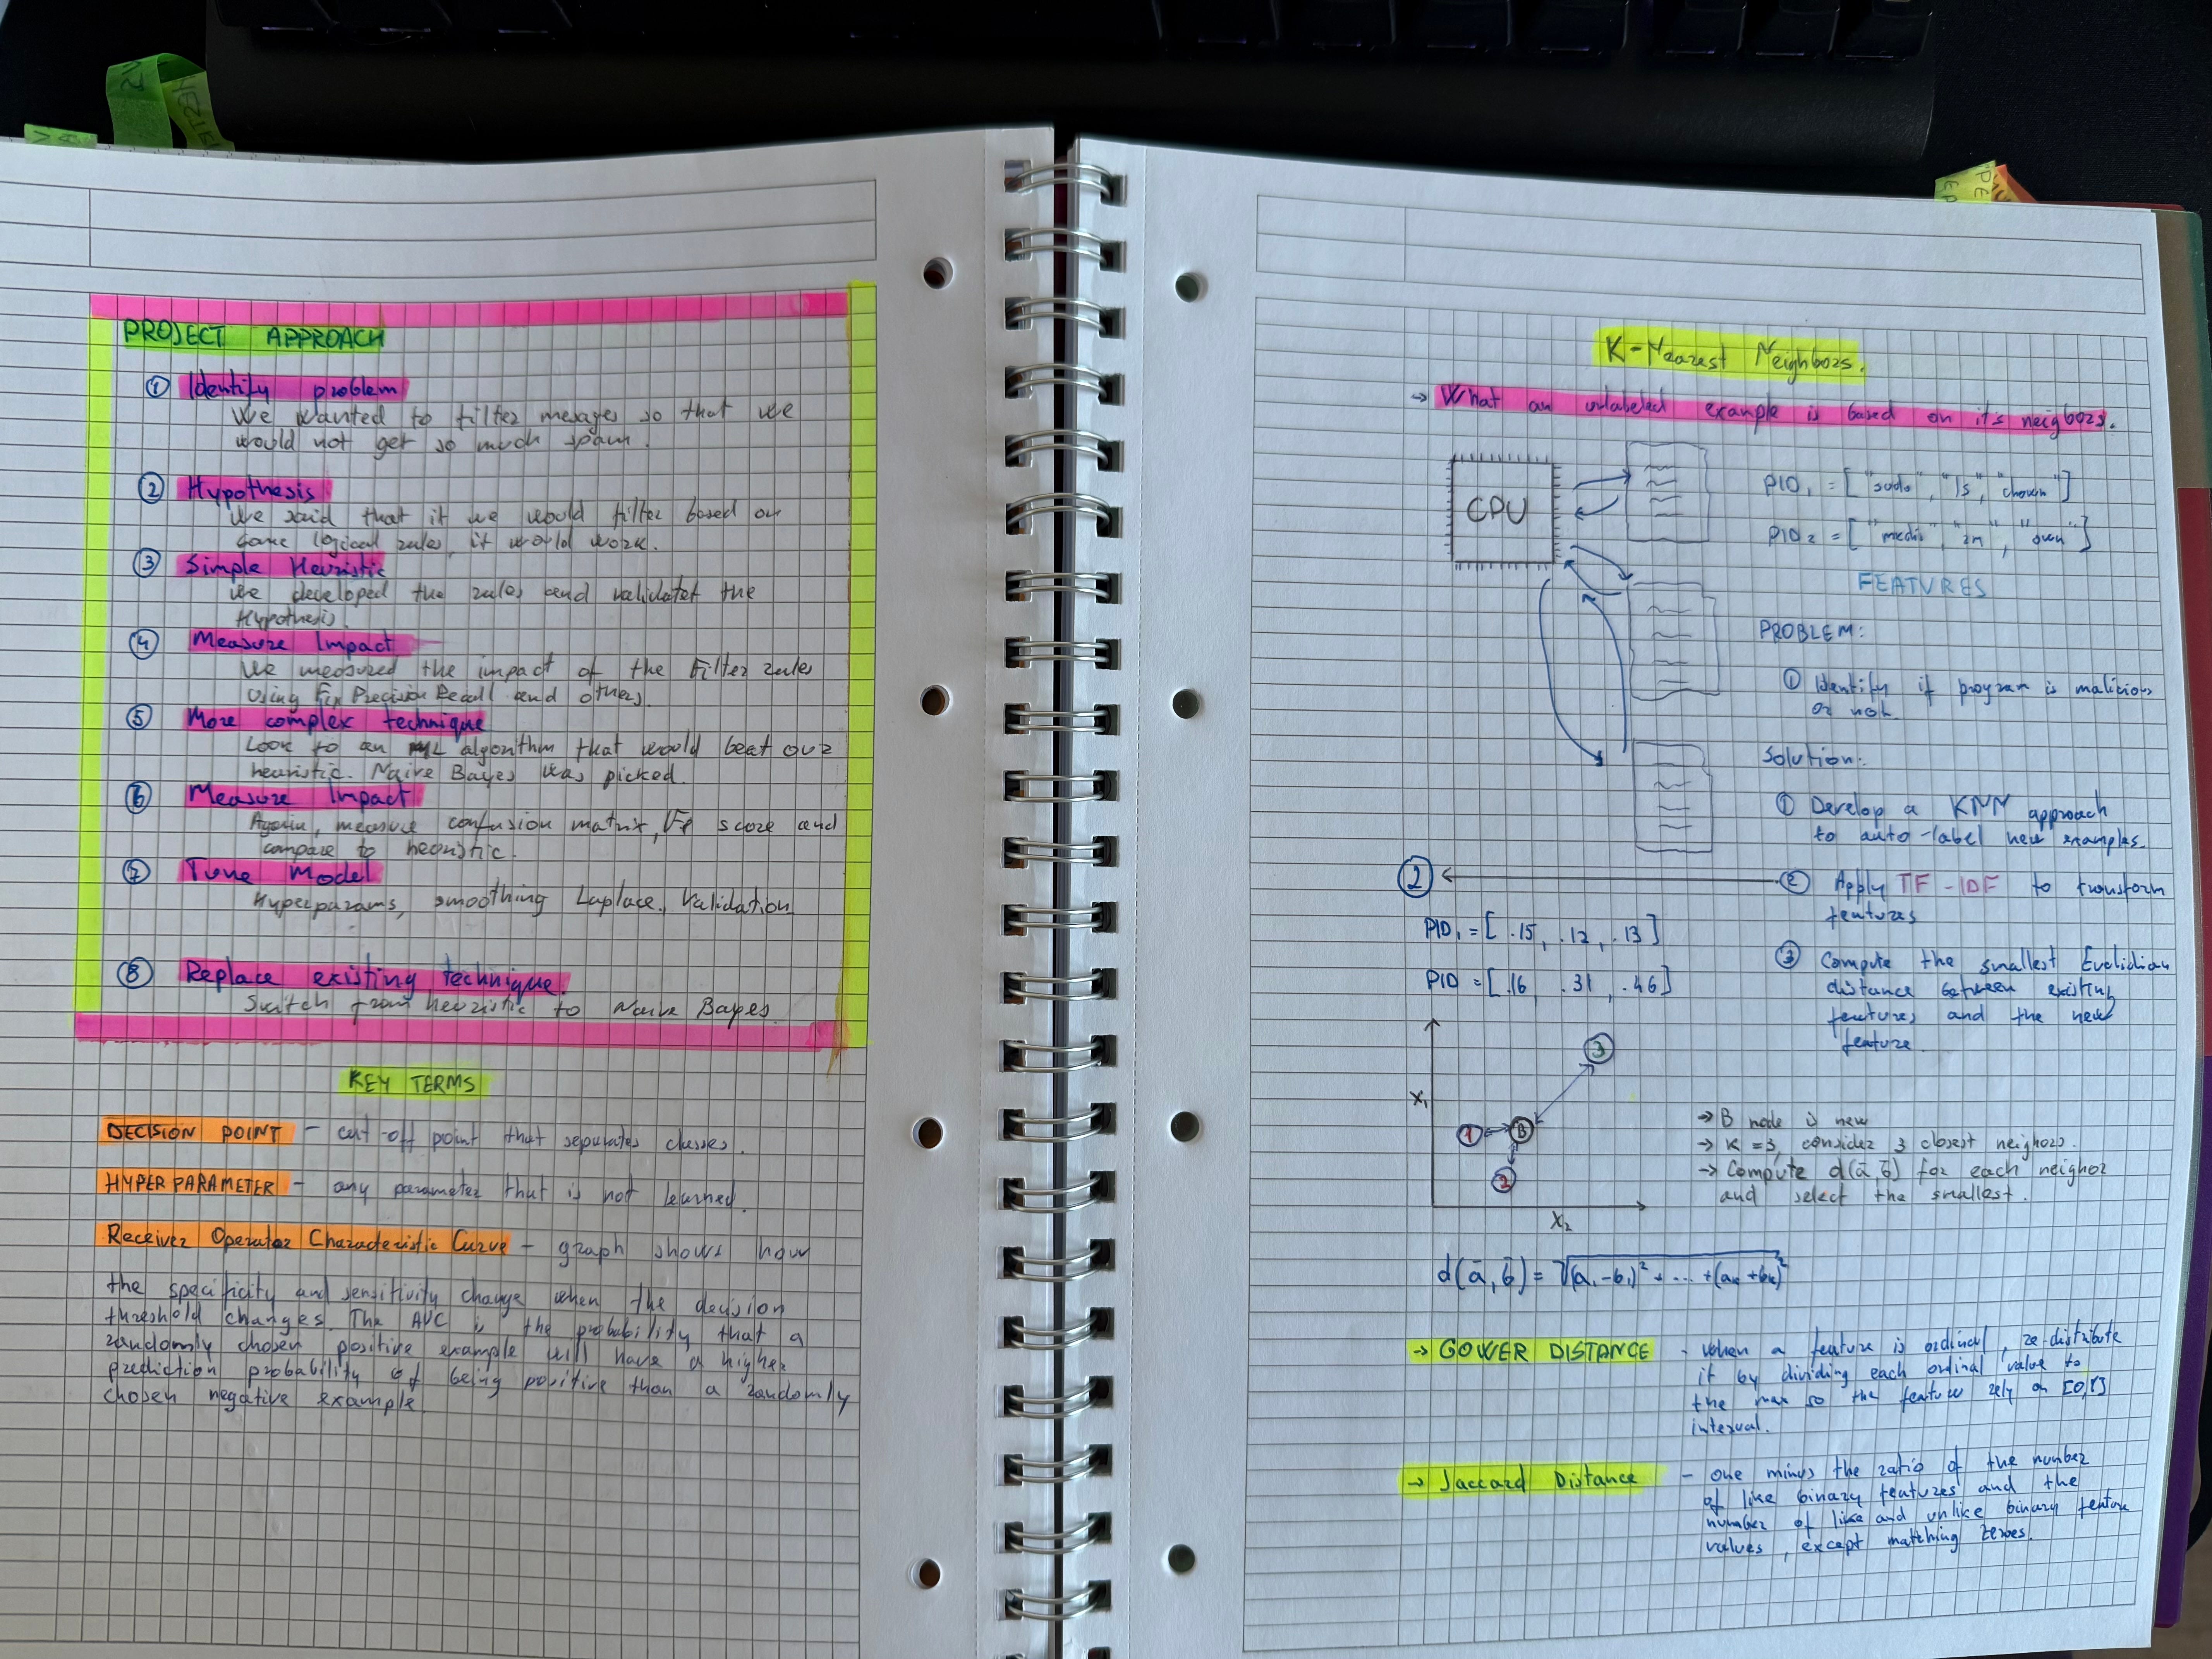 PROJECT APPROACH
① Identify problem
We wanted to filter mesages so that we
would not get so much spam.
② Hypothesis
We said that if we would filter based on
some logical rules, it would work.
③ Simple Heuristic
We developed the rules and validatet the
Hypothesis.
④ Measure Impact
We measured the impact of the Filter rules
Using Precision Recall and others.
⑤ More complex technique
Look to an ML algorithm that would beat our
heuristic. Naive Bayes was picked.
⑥ Measure Impact
Again, measure confusion matrix, score and
compare to heuristic.
⑦ Tune Model
Hyperparams, smoothing Laplace, Validation
⑧ Replace existing technique.
Switch from heuristic to Naive Bayes.
KEY TERMS
DECISION POINT - cut-off point that separates classes.
HYPERPARAMETER - any parameter that is not learned.
Receiver Operator Characteristic Curve - graph shows how
the specificity and sensitivity change when the decision
threshold changes. The AUC is the probability that a
randomly chosen positive example will have a higher
prediction probability of being positive than a randomly
chosen negative example.
K-Nearest Neighbors.
→ What an unlabeled example is based on it's neigbors.
CPU
PID₁ = ["sudo", "ls", "chown"]
PID₂ = ["rm", "own"]
FEATURES
PROBLEM:
① Identify if program is malicious
or not.
Solution:
① Develop a KNN approach
to auto-label new examples.
② ② Apply TF-IDF to transform
features
PID₁ = [.15, .12, .13]
PID = [.16, .31, .46]
③ Compute the smallest Euclidian
distance between existing
features and the new
feature.
3
X₁
1 B
2
X₂
→ B node is new
→ K=3, consider 3 closest neighors.
→ Compute d(ā,b̄) for each neighor
and select the smallest.
d(ā,b̄) = √(a₁-b₁)² + ... + (aₖ+bₖ)²
→ GOWER DISTANCE - when a feature is ordinal, re-distribute
it by dividing each ordinal value to
the max so the feature rely on [0,1]
interval.
→ Jaccard Distance - one minus the ratio of the number
of like binary features and the
number of like and unlike binary feature
values, except matching zeroes.